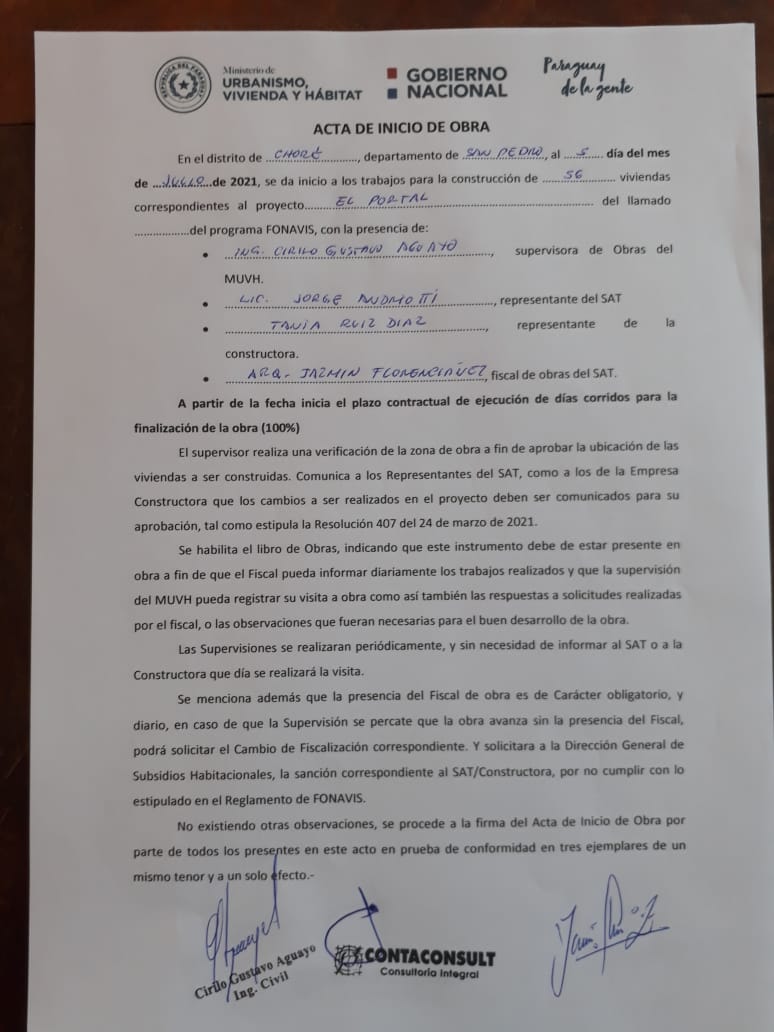 REPUBLICA DEL PARAGUAY
Ministerio de
URBANISMO,
VIVIENDA Y HÁBITAT
GOBIERNO
NACIONAL
Paraguay
de la gente
ACTA DE INICIO DE OBRA
En el distrito de CHORÉ, departamento de SAN PEDRO, al 5 día del mes
de JULIO de 2021, se da inicio a los trabajos para la construcción de 56 viviendas
correspondientes al proyecto EL PORTAL del llamado
del programa FONAVIS, con la presencia de:
• ING. CIRILO GUSTAVO AGUAYO, supervisora de Obras del
MUVH.
• LIC. JORGE, representante del SAT
• TANIA RUIZ DIAZ, representante de la
constructora.
• ARQ. JAZMIN, fiscal de obras del SAT.
A partir de la fecha inicia el plazo contractual de ejecución de días corridos para la
finalización de la obra (100%)
El supervisor realiza una verificación de la zona de obra a fin de aprobar la ubicación de las
viviendas a ser construidas. Comunica a los Representantes del SAT, como a los de la Empresa
Constructora que los cambios a ser realizados en el proyecto deben ser comunicados para su
aprobación, tal como estipula la Resolución 407 del 24 de marzo de 2021.
Se habilita el libro de Obras, indicando que este instrumento debe de estar presente en
obra a fin de que el Fiscal pueda informar diariamente los trabajos realizados y que la supervisión
del MUVH pueda registrar su visita a obra como así también las respuestas a solicitudes realizadas
por el fiscal, o las observaciones que fueran necesarias para el buen desarrollo de la obra.
Las Supervisiones se realizaran periódicamente, y sin necesidad de informar al SAT o a la
Constructora que día se realizará la visita.
Se menciona además que la presencia del Fiscal de obra es de Carácter obligatorio, y
diario, en caso de que la Supervisión se percate que la obra avanza sin la presencia del Fiscal,
podrá solicitar el Cambio de Fiscalización correspondiente. Y solicitara a la Dirección General de
Subsidios Habitacionales, la sanción correspondiente al SAT/Constructora, por no cumplir con lo
estipulado en el Reglamento de FONAVIS.
No existiendo otras observaciones, se procede a la firma del Acta de Inicio de Obra por
parte de todos los presentes en este acto en prueba de conformidad en tres ejemplares de un
mismo tenor y a un solo efecto.-
Cirilo Gustavo Aguayo
Ing. Civil
CONTACONSULT
Consultoría Integral